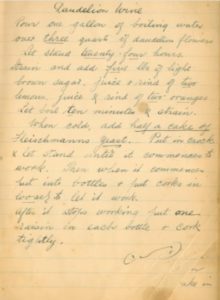 Dandelion Wine
Pour one gallon of boiling water
over three quarts of dandelion flowers
Let stand twenty-four hours.
Strain and add five lbs of light
brown sugar. juice & rind of two
lemons, juice & rind of two oranges
Let boil ten minutes & strain.
When cold, add half a cake of
Fleischmanns Yeast. Put in crock
& let stand until it commences to
work. Then when it commences
put into bottles & put corks in
loosely to let it work.
after it stops working put one
raisin in each bottle & cork
tightly.